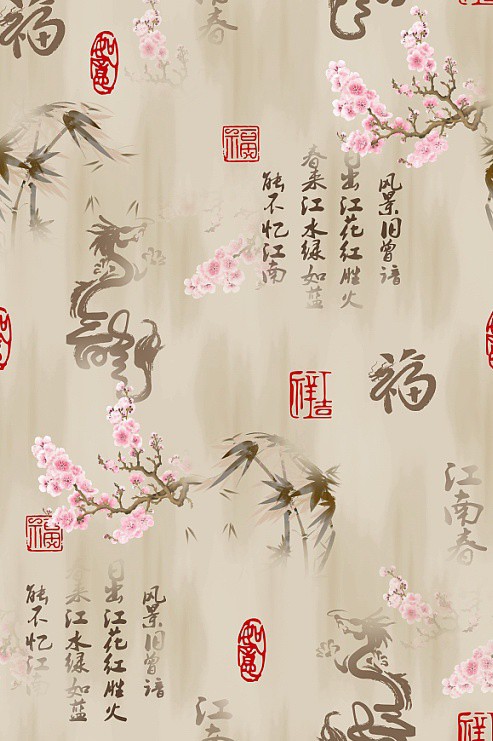 福
春
如意
福
风景旧曾谙
日出江花红胜火
春来江水绿如蓝
能不忆江南
吉祥
福
江南春
福
风景旧曾谙
日出江花红胜火
春来江水绿如蓝
能不忆江南
如意
江南
福